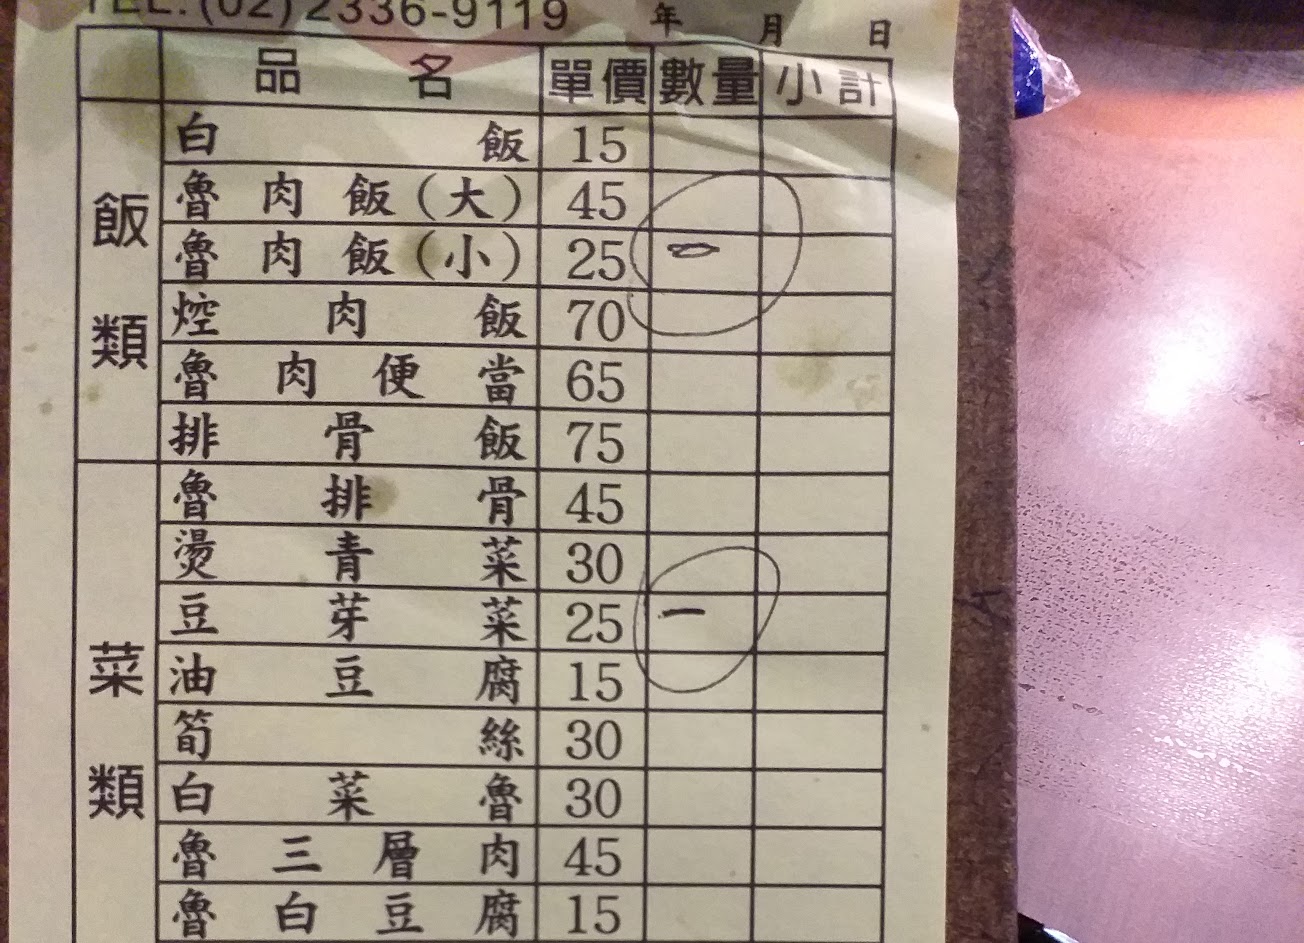 TEL:(02)2336-9119 年 月 日
品名 單價 數量 小計
飯類
白飯 15
魯肉飯(大) 45
魯肉飯(小) 25
焢肉飯 70
魯肉便當 65
排骨飯 75
菜類
魯排骨 45
燙青菜 30
豆芽菜 25 一
油豆腐 15
筍絲 30
白菜魯 30
魯三層肉 45
魯白豆腐 15